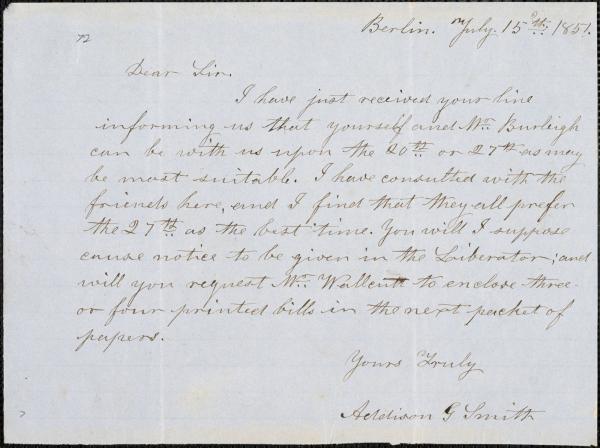 72
Berlin. July. 15th. 1851.
Dear Sir.
I have just received your line
informing us that yourself and Mr. Burleigh
can be with us upon the 20th or 27th as may
be most suitable. I have consulted with the
friends here, and I find that they all prefer
the 27th as the best time. You will I suppose
cause notice to be given in the Liberator; and
will you request Mr. Wallcutt to enclose three
or four printed bills in the next packet of
papers.
Yours Truly
Addison G Smith